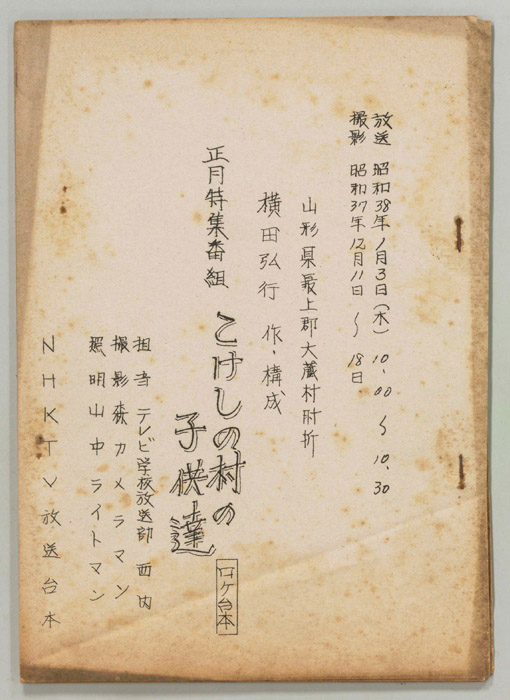 放送 昭和38年1月3日(木) 10.00〜10.30
撮影 昭和37年12月11日〜18日
山形県最上郡大蔵村肘折
横田弘行 作・構成
正月特集番組 こけしの村の
子供達
ロケ台本
担当 テレビ学校放送部 西内
撮影 森カメラマン
照明 山中ライトマン
NHKTV放送台本